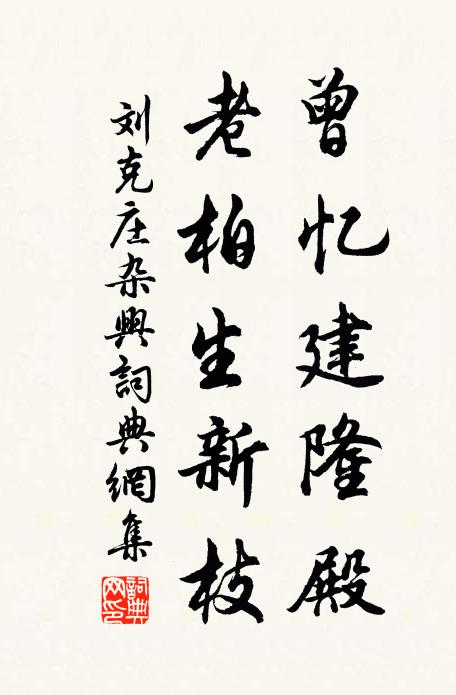 曾忆建隆殿
老柏生新枝
刘克庄杂興詞典網集
詞典网印